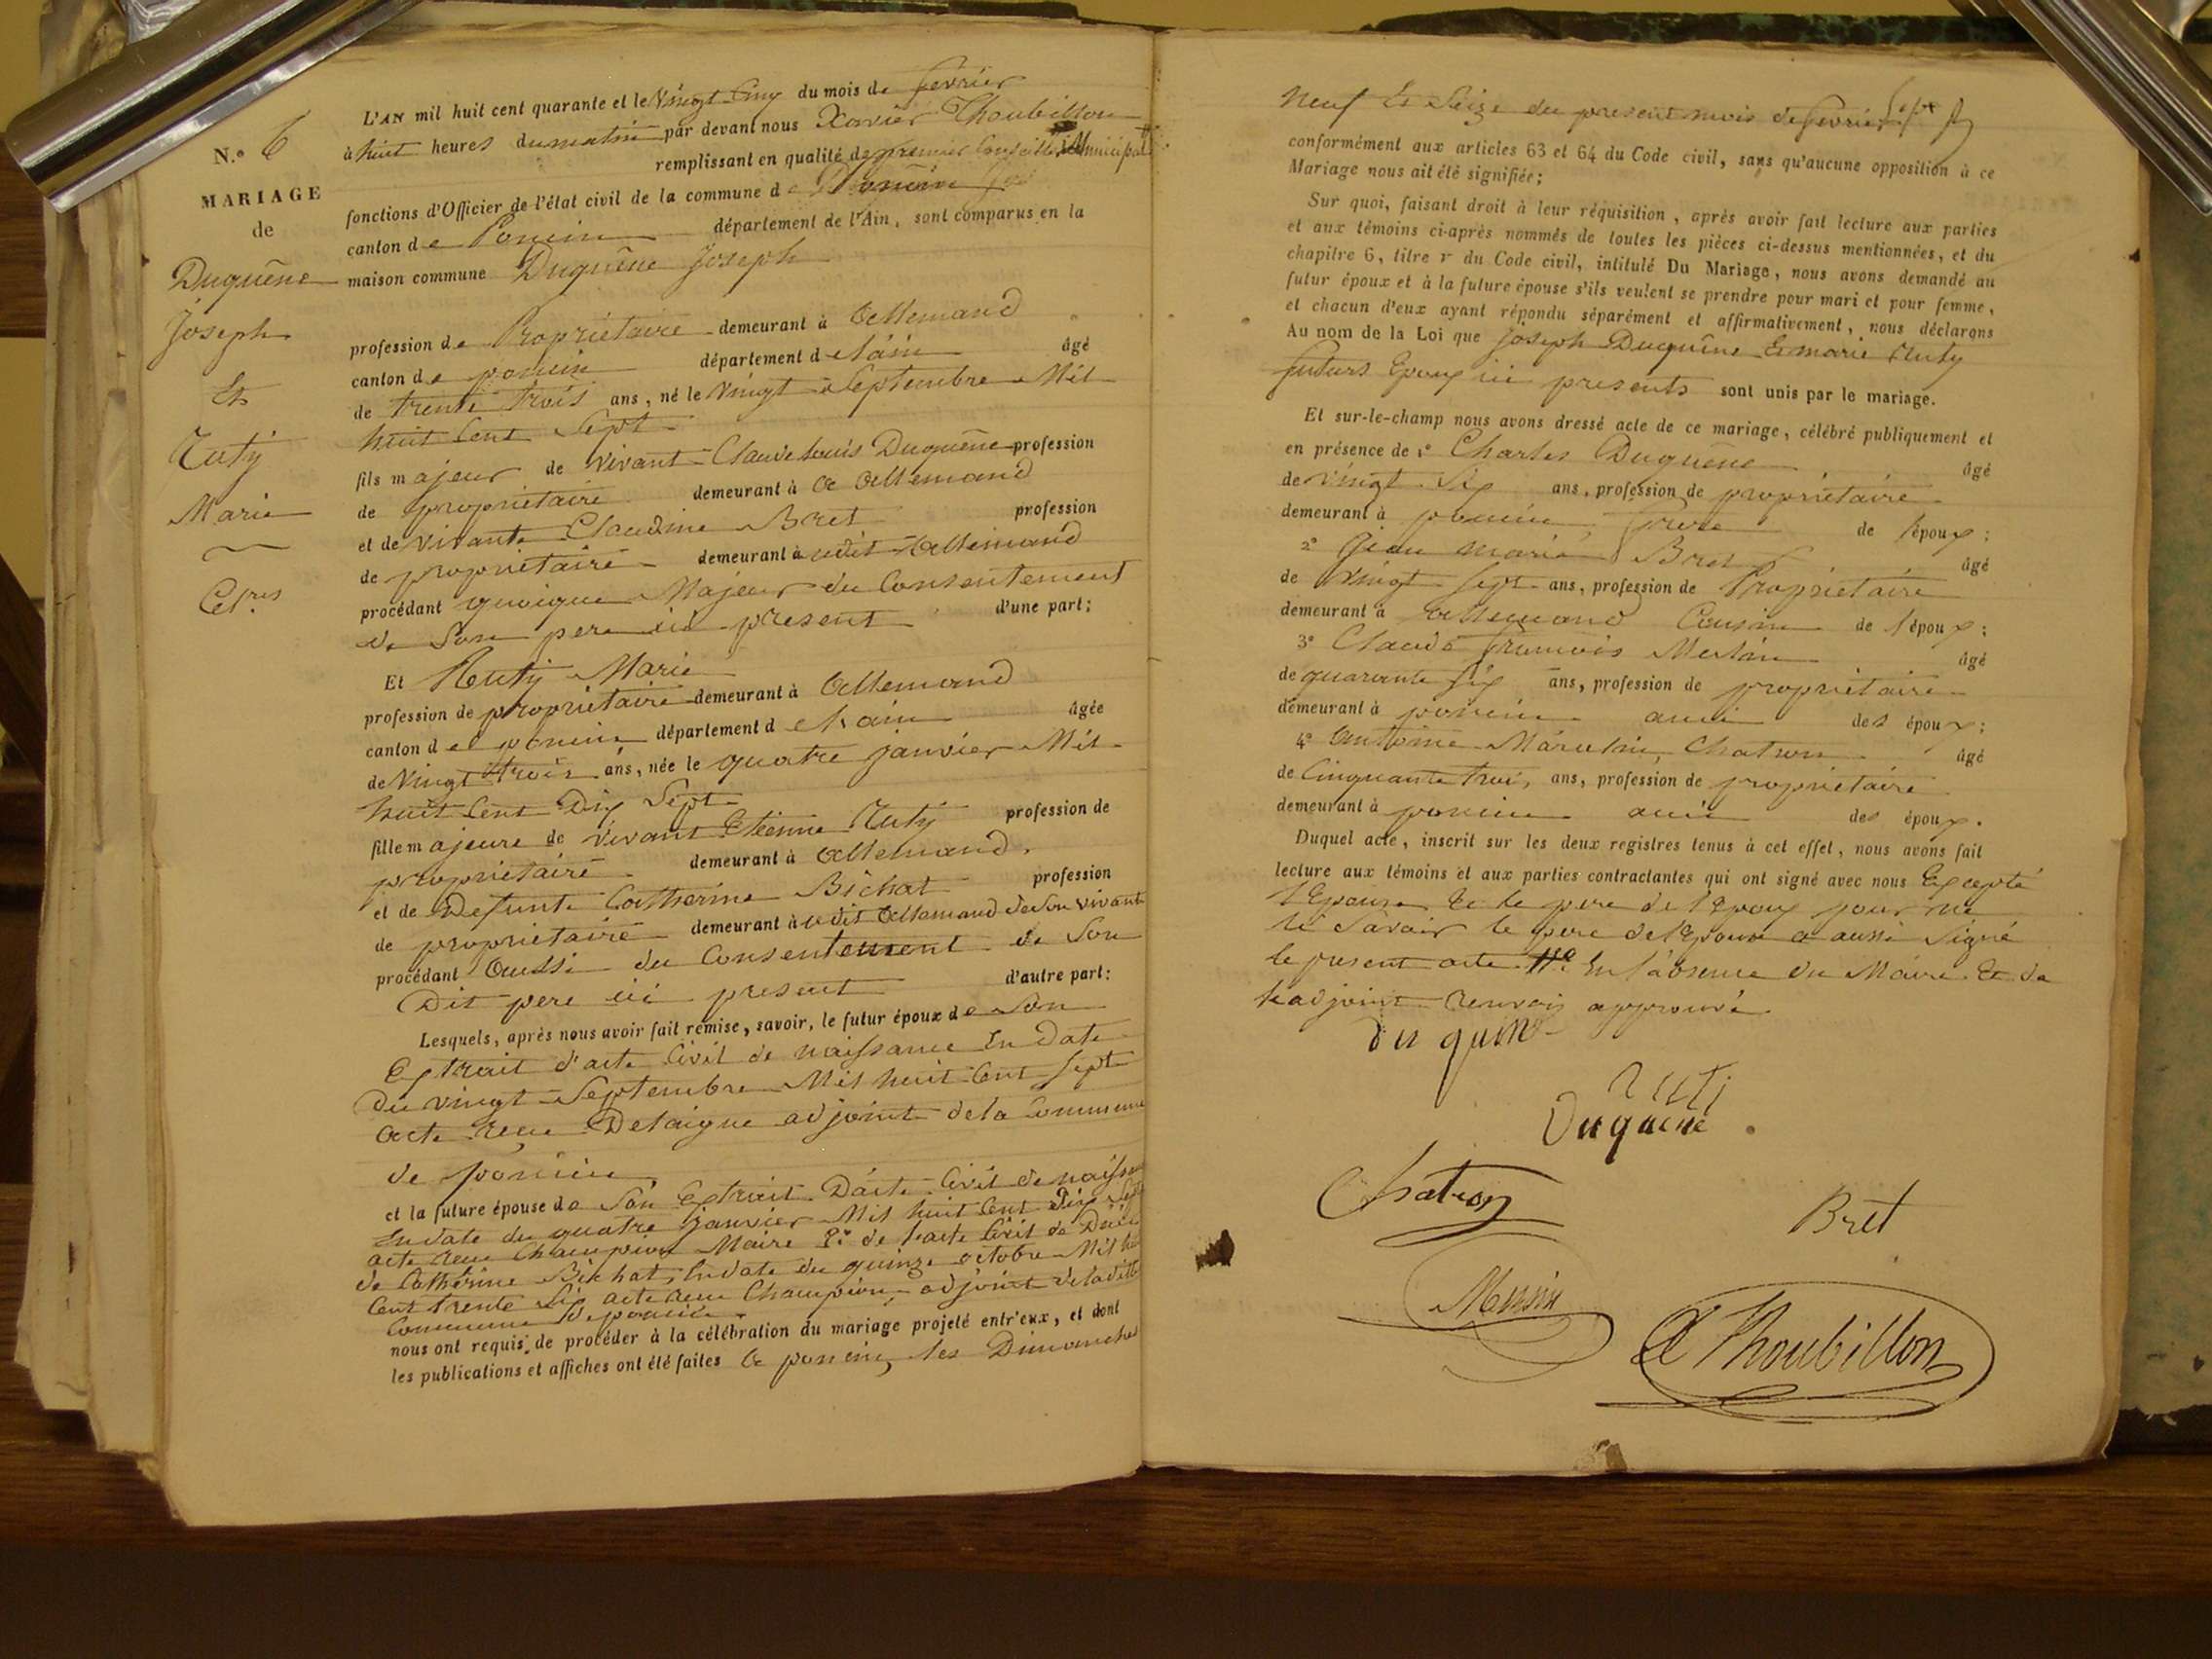 N.° 6
MARIAGE
de
Duquêne
Joseph
Et
Ruty
Marie
Cel.res
L'AN mil huit cent quarante et le Vingt Cinq du mois de fevrier
à huit heures du matin par devant nous Xavier Thoubillon
remplissant en qualité de premier Conseiller Municipal
fonctions d'Officier de l'état civil de la commune de Poncin
canton de Poncin département de l'Ain, sont comparus en la
maison commune Duquêne Joseph
profession de Propriétaire demeurant à Allemand
canton de poncin département de l'ain âgé
de trente trois ans, né le Vingt Septembre Mil
huit Cent Sept
fils majeur de vivant Claude Louis Duquêne profession
de propriétaire demeurant à a Allemand
et de vivante Claudine Bret profession
de propriétaire demeurant à udit Allemand
procédant quoique Majeur du Consentement
de Son pere ici present d'une part;
Et Ruty Marie
profession de propriétaire demeurant à Allemand
canton de poncin département de l'ain âgée
de Vingt trois ans, née le quatre janvier Mil
huit Cent Dix Sept
fille majeure de vivant Etienne Ruty profession de
propriétaire demeurant à Allemand.
et de Defunte Catherine Bichat profession
de propriétaire demeurant à udit Allemand de Son vivant
procédant Aussi du Consentement de Son
Dit pere ici present d'autre part:
Lesquels, après nous avoir fait remise, savoir, le futur époux de Son
Extrait d'acte Civil de naissance En Date
Du vingt Septembre Mil huit Cent Sept
acte reçu Delaigue adjoint de la Commune
de poncin
et la future épouse de Son Extrait D'acte Civil de naissance
En date du quatre janvier Mil huit Cent Dix Sept
acte reçu Champion Maire 2° de l'acte Civil de Décès
de Catherine Bichat, En date du quinze octobre Mil huit
Cent trente Six acte reçu Champion adjoint de ladite
Commune de poncin
nous ont requis de procéder à la célébration du mariage projeté entr'eux, et dont
les publications et affiches ont été faites a poncin, les Dimanches
neuf Et Seize du present mois de fevrier
conformément aux articles 63 et 64 du Code civil, sans qu'aucune opposition à ce
Mariage nous ait été signifiée;
Sur quoi, faisant droit à leur réquisition, après avoir fait lecture aux parties
et aux témoins ci-après nommés de toutes les pièces ci-dessus mentionnées, et du
chapitre 6, titre v du Code civil, intitulé Du Mariage, nous avons demandé au
futur époux et à la future épouse s'ils veulent se prendre pour mari et pour femme,
et chacun d'eux ayant répondu séparément et affirmativement, nous déclarons
Au nom de la Loi que Joseph Duquêne Et marie Ruty
futurs Epoux ici presents sont unis par le mariage.
Et sur-le-champ nous avons dressé acte de ce mariage, célébré publiquement et
en présence de 1° Charles Duquêne âgé
de vingt Six ans, profession de propriétaire
demeurant à poncin, frere de l'époux;
2° Jean Marie Bret âgé
de Vingt Sept ans, profession de Propriétaire
demeurant à Allemand Cousin de l'époux;
3° Claude François Meslin âgé
de quarante Six ans, profession de propriétaire
demeurant à poncin ami des époux;
4° Antoine Chatron âgé
de Cinquante trois ans, profession de propriétaire
demeurant à poncin ami des époux.
Duquel acte, inscrit sur les deux registres tenus à cet effet, nous avons fait
lecture aux témoins et aux parties contractantes qui ont signé avec nous Excepté
l'Epouse Et le pere de l'Epoux pour ne
le Savoir le pere de l'Epouse a aussi Signé
le present acte. En l'absence du Maire Et de
l'adjoint renvoi approuvé
duquene
ruti
Duquene
Chatron
Bret
X Thoubillon